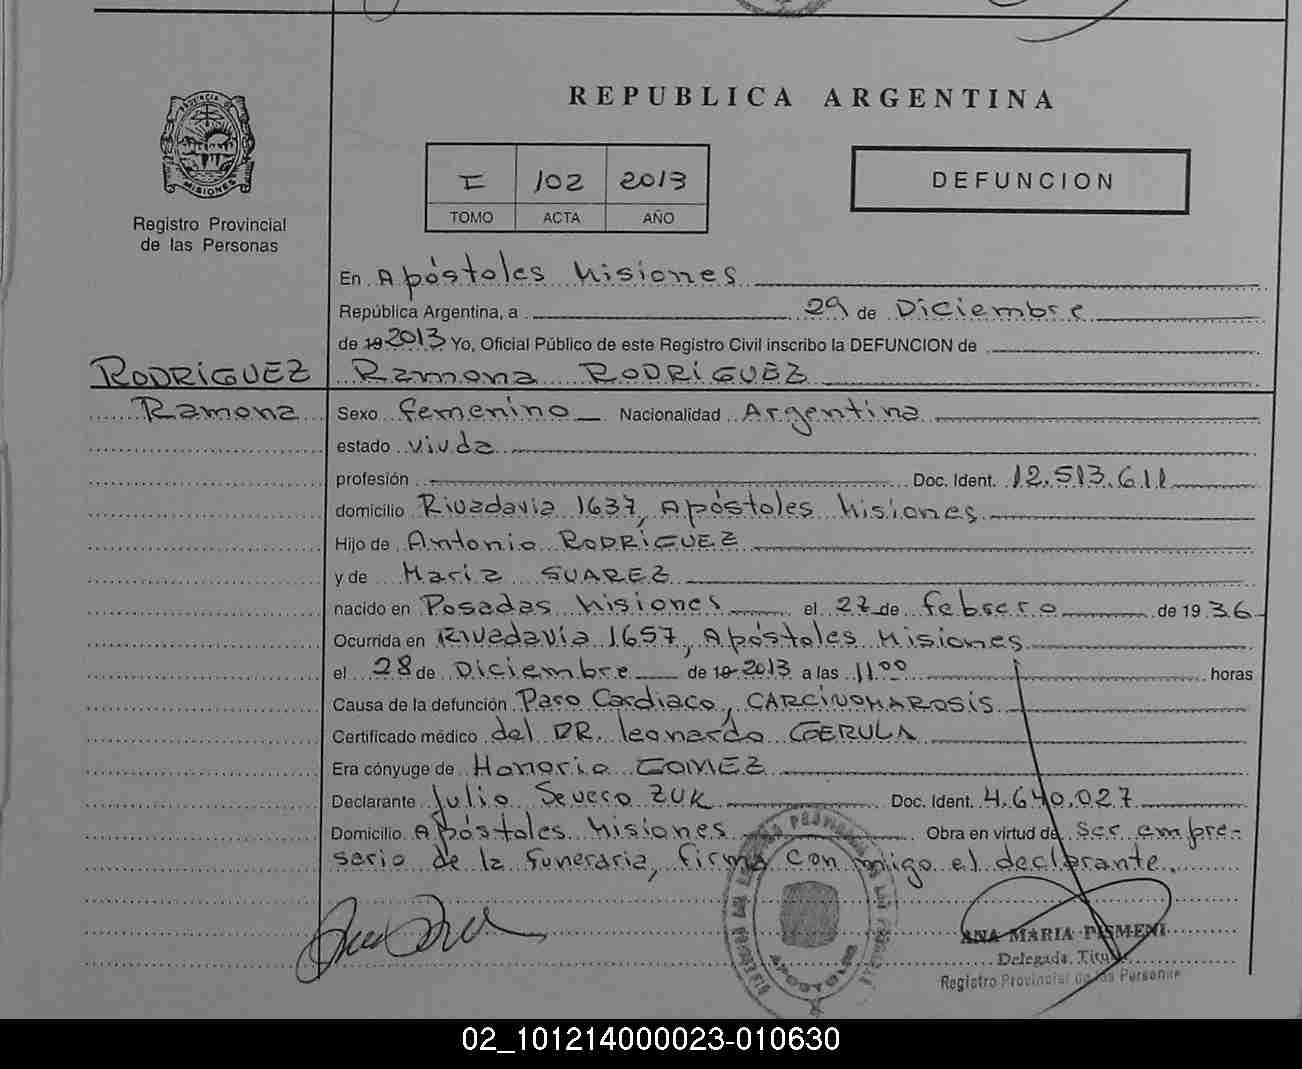 REPUBLICA ARGENTINA
PROVINCIA DE
MISIONES
Registro Provincial
de las Personas
I 102 2013
TOMO ACTA AÑO
DEFUNCION
En Apóstoles Misiones
República Argentina, a 29 de Diciembre
de 19 2013 Yo, Oficial Público de este Registro Civil inscribo la DEFUNCION de
RODRÍGUEZ Ramona RODRÍGUEZ
Ramona Sexo femenino Nacionalidad Argentina
estado viuda
profesión Doc. Ident. 12.513.611
domicilio Rivadavia 1637, Apóstoles Misiones
Hijo de Antonio RODRÍGUEZ
y de María SUAREZ
nacido en Posadas Misiones el 27 de febrero de 19 36
Ocurrida en Rivadavia 1657, Apóstoles Misiones
el 28 de Diciembre de 19 2013 a las 11.00 horas
Causa de la defunción Paro Cardiaco, CARCINOMAROSIS
Certificado médico del DR. Leonardo GERULA
Era cónyuge de Honorio GOMEZ
Declarante Julio Severo ZUK Doc. Ident. 4.640.027
Domicilio Apóstoles Misiones Obra en virtud de ser empre-
sario de la funeraria, firma con migo el declarante.
APOSTOLES
ANA MARIA PISMENI
Delegada Titular
Registro Provincial de las Personas
02_101214000023-010630